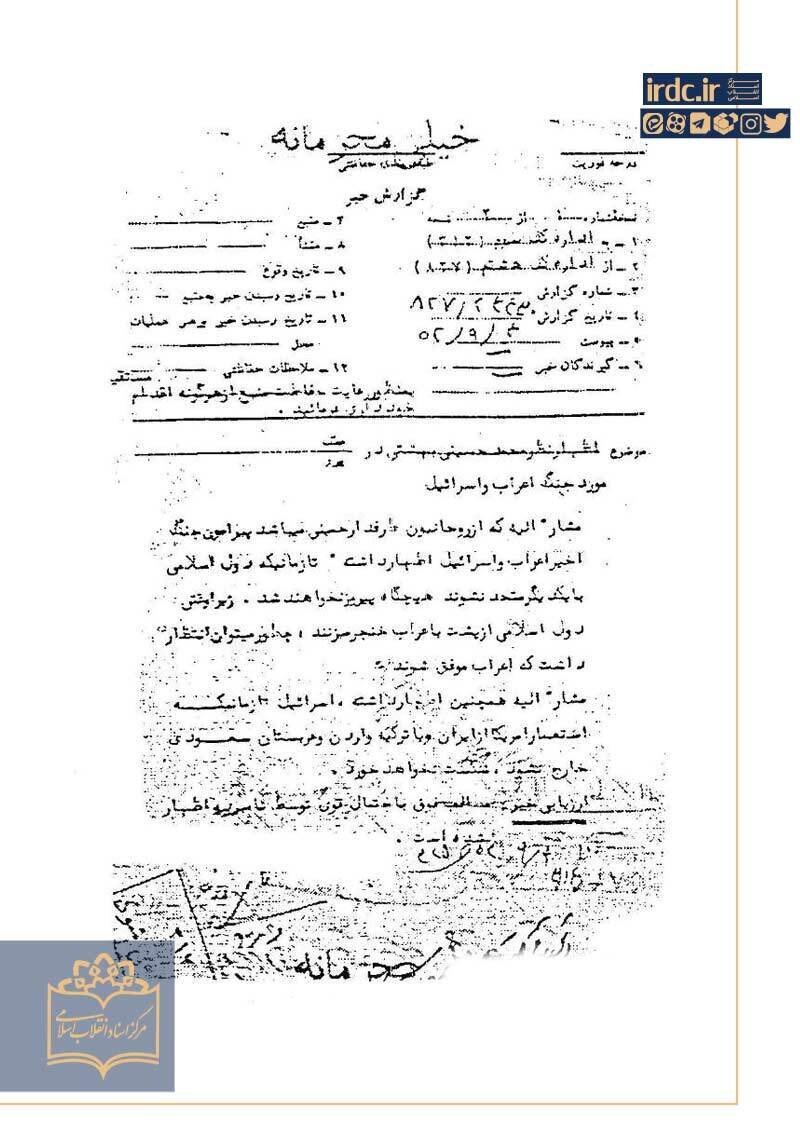 irdc.ir
مرکز اسناد انقلاب اسلامی
خیلی محرمانه
طبقه‌بندی حفاظتی
درجه فوریت
گزارش خبر
نسخه شماره از ۲ نسخه
۱ ـ به اداره کل سوم (۳۱۲)
۲ ـ از اداره کل هشتم (۸۲۷)
۳ ـ شماره گزارش ۸۲۷/
۴ ـ تاریخ گزارش ۵۲/۹/۳
۵ ـ پیوست
۶ ـ گیرندگان خبر
۷ ـ منبع
۸ ـ منشأ
۹ ـ تاریخ وقوع
۱۰ ـ تاریخ رسیدن خبر به منبع
۱۱ ـ تاریخ رسیدن خبر برهبر عملیات
محل
۱۲ ـ ملاحظات حفاظتی مستقیم
بمنظور رعایت حفاظت منبع از هرگونه اقدام
خودداری فرمائید .
موضوع اظهار نظر محمد حسینی بهشتی در
مورد جنگ اعراب و اسرائیل
مشار الیه که از روحانیون طرفدار خمینی میباشد پیرامون جنگ
اخیر اعراب و اسرائیل اظهار داشت " تا زمانیکه دول اسلامی
با یکدیگر متحد نشوند هیچگاه پیروز نخواهند شد . زیرا وقتی
دول اسلامی از پشت باعراب خنجر میزنند ، چطور میتوان انتظار
داشت که اعراب موفق شوند "
مشار الیه همچنین اظهار داشت ، اسرائیل تا زمانیکه
استعمار امریکا از ایران و یا ترکیه و اردن و عربستان سعودی
خارج نشود ، شکست نخواهد خورد .
ارزیابی خبر ـ مطالب فوق با احتمال قوی توسط نامبرده اظهار
شده است .
محرمانه
مرکز اسناد انقلاب اسلامی